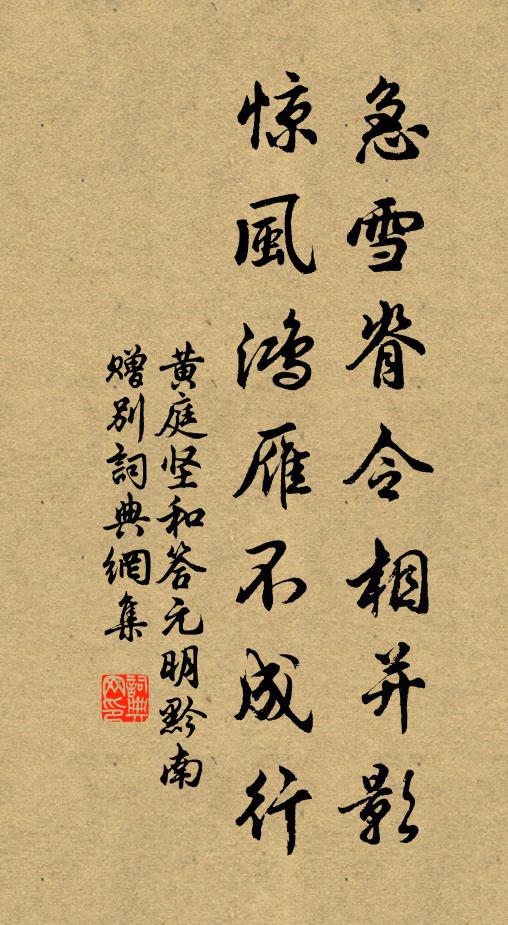 急雪脊令相并影
惊風鸿雁不成行
黄庭坚和答元明黔南
赠别詞典網集
詞典網印